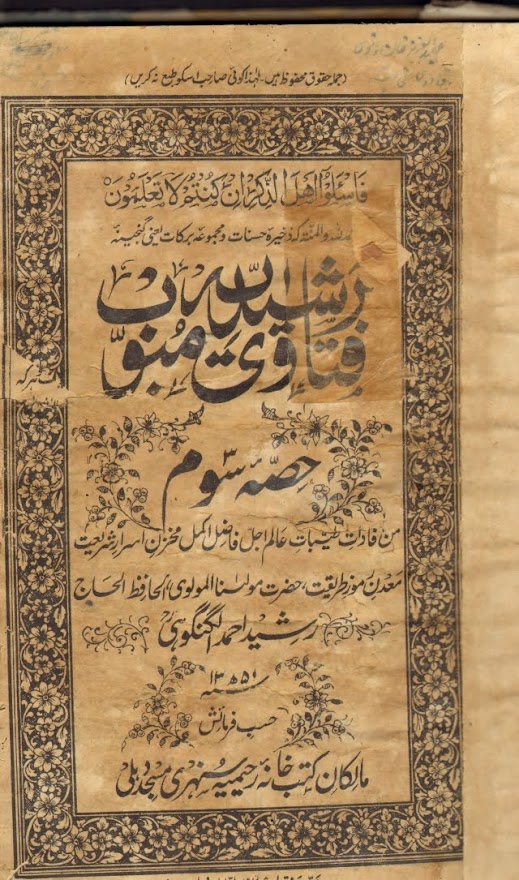 (جملہ حقوق محفوظ ہیں۔ لہٰذا کوئی صاحب اسکو طبع نہ کریں)
فَاسْئَلُوْا اَهْلَ الذِّكْرِ اِنْ كُنْتُمْ لَا تَعْلَمُوْنَ
والمنۃ کہ ذخیرہ حسنات و مجموعہ برکات یعنی گنجینہ
فتاویٰ رشیدیہ مبوّب
حصۂ سوم
من افادات طیبات عالم اجل فاضل اکمل مخزن اسرار شریعت
معدن رموز طریقت، حضرت مولٰنا المولوی الحافظ الحاج
رشید احمد الگنگوہی
سنہ ۱۳۵۱ھ
حسب فرمائش
مالکان کتب خانہ رحیمیہ سنہری مسجد دہلی